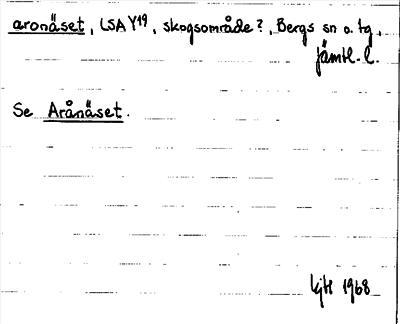 aronäset, LSA Y19, skogsområde?, Bergs sn o. tg,
jämtl. l.
Se Arånäset.
1968